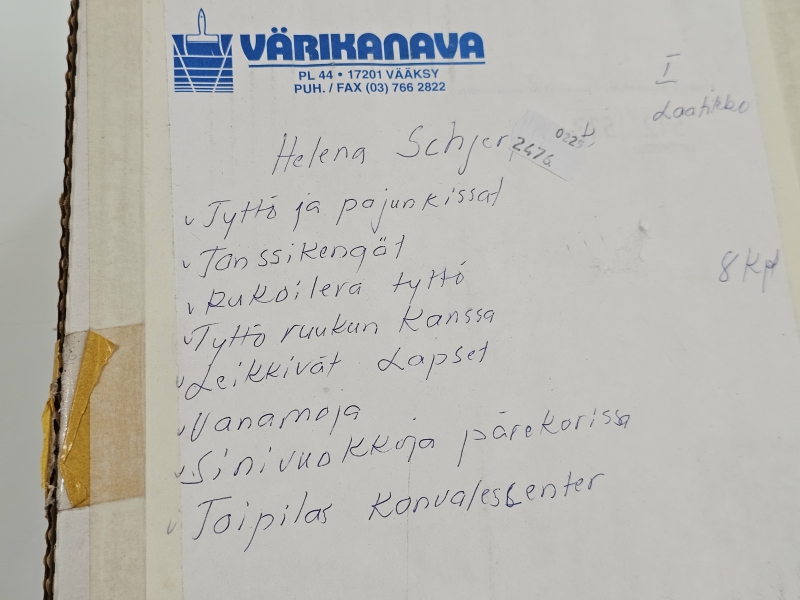 VÄRIKANAVA
PL 44 • 17201 VÄÄKSY
PUH. / FAX (03) 766 2822
I
Laatikko
Helena Schjer
2474
✓ Tyttö ja pajunkissat
✓ Tanssikengät
✓ Rukoileva tyttö
8 Kpl
✓ Tyttö ruukun Kanssa
✓ Leikkivät Lapset
✓ Vanamoja
✓ Sinivuokkoja pärekorissa
✓ Toipilas Konvalescenter